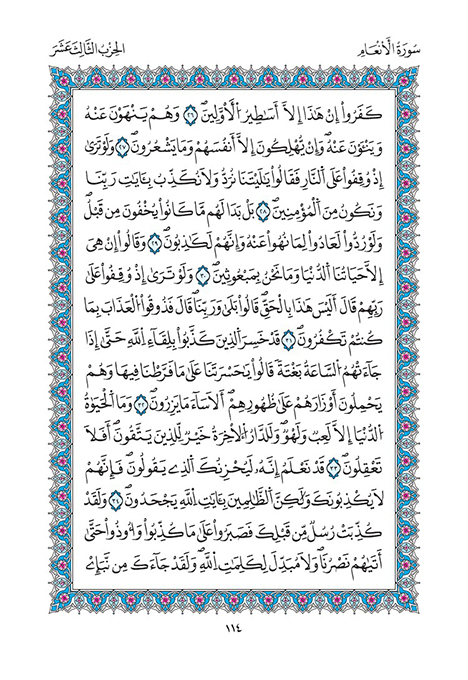 سُورَةُ الْأَنْعَامِ
الحِزْبُ الثَّالِثَ عَشَرَ
كَفَرُوا إِنْ هَٰذَا إِلَّا أَسَٰطِيرُ الْأَوَّلِينَ ٢٦ وَهُمْ يَنْهَوْنَ عَنْهُ
وَيَنْـَٔوْنَ عَنْهُ وَإِنْ يُهْلِكُونَ إِلَّا أَنفُسَهُمْ وَمَا يَشْعُرُونَ ٢٧ وَلَوْ تَرَىٰ
إِذْ وُقِفُوا عَلَى النَّارِ فَقَالُوا يَٰلَيْتَنَا نُرَدُّ وَلَا نُكَذِّبُ بِـَٔايَٰتِ رَبِّنَا
وَنَكُونُ مِنَ الْمُؤْمِنِينَ ٢٨ بَلْ بَدَا لَهُم مَّا كَانُوا يُخْفُونَ مِن قَبْلُ
وَلَوْ رُدُّوا لَعَادُوا لِمَا نُهُوا عَنْهُ وَإِنَّهُمْ لَكَٰذِبُونَ ٢٩ وَقَالُوا إِنْ هِيَ
إِلَّا حَيَاتُنَا الدُّنْيَا وَمَا نَحْنُ بِمَبْعُوثِينَ ٣٠ وَلَوْ تَرَىٰ إِذْ وُقِفُوا عَلَىٰ
رَبِّهِمْ قَالَ أَلَيْسَ هَٰذَا بِالْحَقِّ قَالُوا بَلَىٰ وَرَبِّنَا قَالَ فَذُوقُوا الْعَذَابَ بِمَا
كُنتُمْ تَكْفُرُونَ ٣١ قَدْ خَسِرَ الَّذِينَ كَذَّبُوا بِلِقَاءِ اللَّهِ حَتَّىٰ إِذَا
جَاءَتْهُمُ السَّاعَةُ بَغْتَةً قَالُوا يَٰحَسْرَتَنَا عَلَىٰ مَا فَرَّطْنَا فِيهَا وَهُمْ
يَحْمِلُونَ أَوْزَارَهُمْ عَلَىٰ ظُهُورِهِمْ أَلَا سَاءَ مَا يَزِرُونَ ٣٢ وَمَا الْحَيَوٰةُ
الدُّنْيَا إِلَّا لَعِبٌ وَلَهْوٌ وَلَلدَّارُ الْأَخِرَةُ خَيْرٌ لِّلَّذِينَ يَتَّقُونَ أَفَلَا
تَعْقِلُونَ ٣٣ قَدْ نَعْلَمُ إِنَّهُ لَيُحْزِنُكَ الَّذِي يَقُولُونَ فَإِنَّهُمْ
لَا يُكْذِبُونَكَ وَلَٰكِنَّ الظَّٰلِمِينَ بِـَٔايَٰتِ اللَّهِ يَجْحَدُونَ ٣٤ وَلَقَدْ
كُذِّبَتْ رُسُلٌ مِّن قَبْلِكَ فَصَبَرُوا عَلَىٰ مَا كُذِّبُوا وَأُوذُوا حَتَّىٰ
أَتَىٰهُمْ نَصْرُنَا وَلَا مُبَدِّلَ لِكَلِمَٰتِ اللَّهِ وَلَقَدْ جَاءَكَ مِن نَّبَإِيْ
١١٤